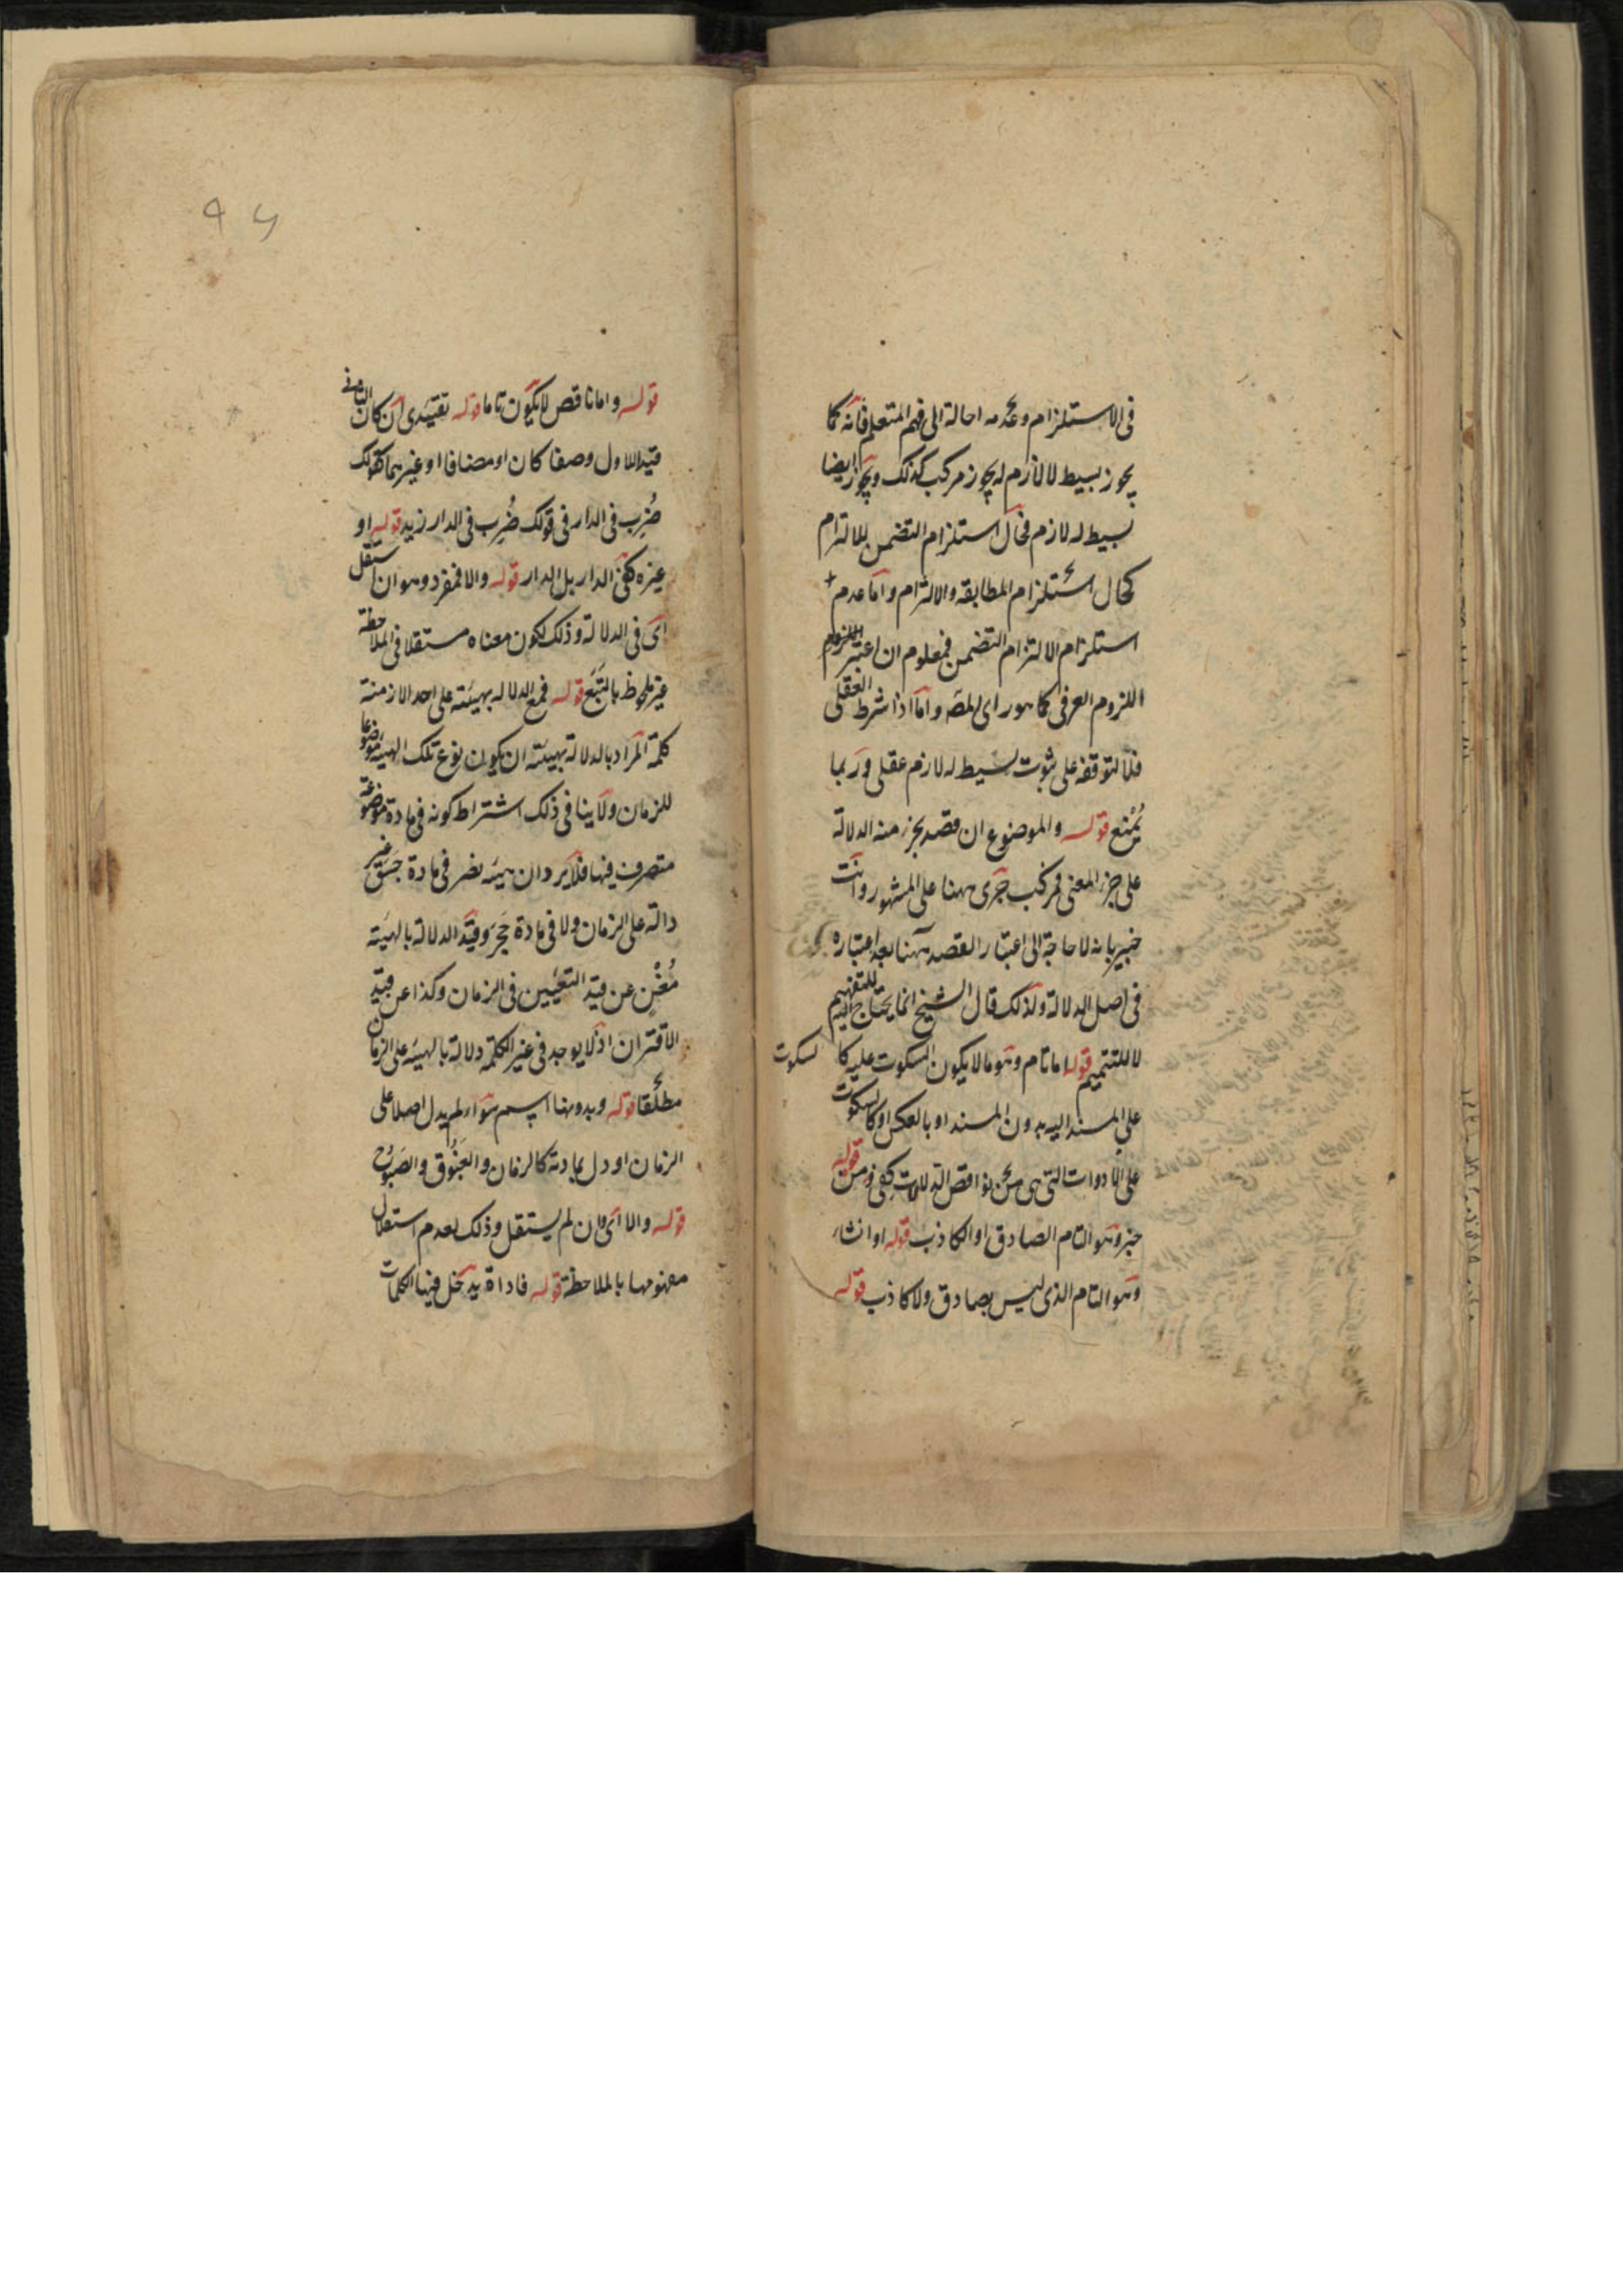 فى الاستلزام وعدمه احالة الى فهم المتعلم فانه كما
يجوز بسيط لا لازم له يجوز مركب كذلك ويجوز ايضا
بسيط له لازم فحال استلزام التضمن للالتزام
كحال استلزام المطابقة والالتزام واما عدم
استلزام الالتزام التضمن فمعلوم ان اعتبر اللزوم
اللزوم العرفى كما هو راى المص واما اذا شرط العقلى
فلا لتوقفه على ثبوت بسيط له لازم عقلى وربما
يمنع قوله والموضوع ان قصد بجزء منه الدلالة
على جزء المعنى فمركب جرى ههنا على المشهور وانت
خبير بانه لا حاجة الى اعتبار القصد ههنا بعد اعتباره
فى اصل الدلالة ولذلك قال الشيخ انما يحتاج اليه للتفهيم
لا للتتميم قوله اما تام وهو ما لا يكون السكوت عليه كالسكوت
على المسند اليه بدون المسند او بالعكس او كالسكوت
على الادوات التى هى من نواقص الدلالات كفى ومن قوله
خبر وهو التام الصادق او الكاذب قوله او انشاء
وهو التام الذى ليس بصادق ولا كاذب قوله
قوله واما ناقص لا يكون تاما قوله تقييدى ان كان الثانى
قيد الاول وصفا كان او مضافا او غيرهما كقولك
ضُرِب فى الدار فى قولك ضُرِب فى الدار زيد قوله او
غيره كفى الدار بل الدار قوله والا فمفرد وهو ان استقل
اى فى الدلالة وذلك لكون معناه مستقلا فى الملاحظة
غير ملحوظ بالتَّبَع قوله فمع الدلالة بهيئته على احد الازمنة
كلمة المراد بالدلالة بهيئته ان يكون نوع تلك الهيئة موضوعا
للزمان ولا ينافى ذلك اشتراط كونه فى مادة موضوعة
متصرف فيها فلا يرد ان هيئة نصر فى مادة جسق غير
دالة على الزمان ولا فى مادة حَجَر وقيد الدلالة بالهيئة
مُغْنٍ عن قيد التعيين فى الزمان وكذا عن قيد
الاقتران اذ لا يوجد فى غير الكلمة دلالة بالهيئة على الزمان
مطلقا قوله وبدونها اسم سواء لم يدل اصلا على
الزمان او دل بمادته كالزمان والغبوق والصبوح
قوله والا اى وان لم يستقل وذلك لعدم استقلال
مفهومها بالملاحظة قوله فاداة يدخل فيها الكلمات